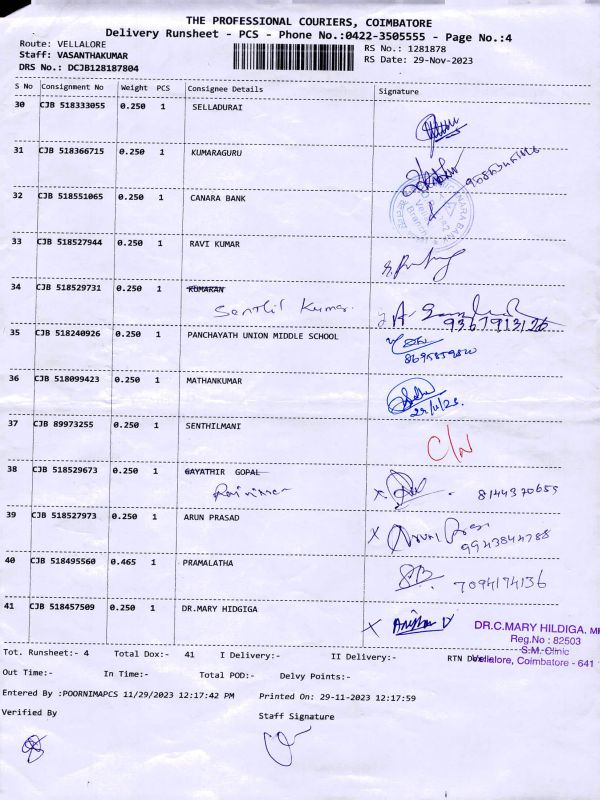 THE PROFESSIONAL COURIERS, COIMBATORE
Delivery Runsheet - PCS - Phone No.:0422-3505555 - Page No.:4
Route: VELLALORE RS No.: 1281878
Staff: VASANTHAKUMAR RS Date: 29-Nov-2023
DRS No.: DCJB128187804
S No Consignment No Weight PCS Consignee Details Signature
30 CJB 518333055 0.250 1 SELLADURAI
31 CJB 518366715 0.250 1 KUMARAGURU
32 CJB 518551065 0.250 1 CANARA BANK
33 CJB 518527944 0.250 1 RAVI KUMAR
34 CJB 518529731 0.250 1 KUMARAN
Senthil Kumar
9367913126
35 CJB 518240926 0.250 1 PANCHAYATH UNION MIDDLE SCHOOL
8695859820
36 CJB 518099423 0.250 1 MATHANKUMAR
29/11/23.
37 CJB 89973255 0.250 1 SENTHILMANI
C/N
38 CJB 518529673 0.250 1 GAYATHIR GOPAL
8144370655
39 CJB 518527973 0.250 1 ARUN PRASAD
9943844788
40 CJB 518495560 0.465 1 PRAMALATHA
7094174136
41 CJB 518457509 0.250 1 DR.MARY HIDGIGA
DR.C.MARY HILDIGA.
Reg.No : 82503
S.M. Clinic
Vellalore, Coimbatore - 641
Tot. Runsheet:- 4 Total Dox:- 41 I Delivery:- II Delivery:- RTN
Out Time:- In Time:- Total POD:- Delvy Points:-
Entered By :POORNIMAPCS 11/29/2023 12:17:42 PM Printed On: 29-11-2023 12:17:59
Verified By Staff Signature